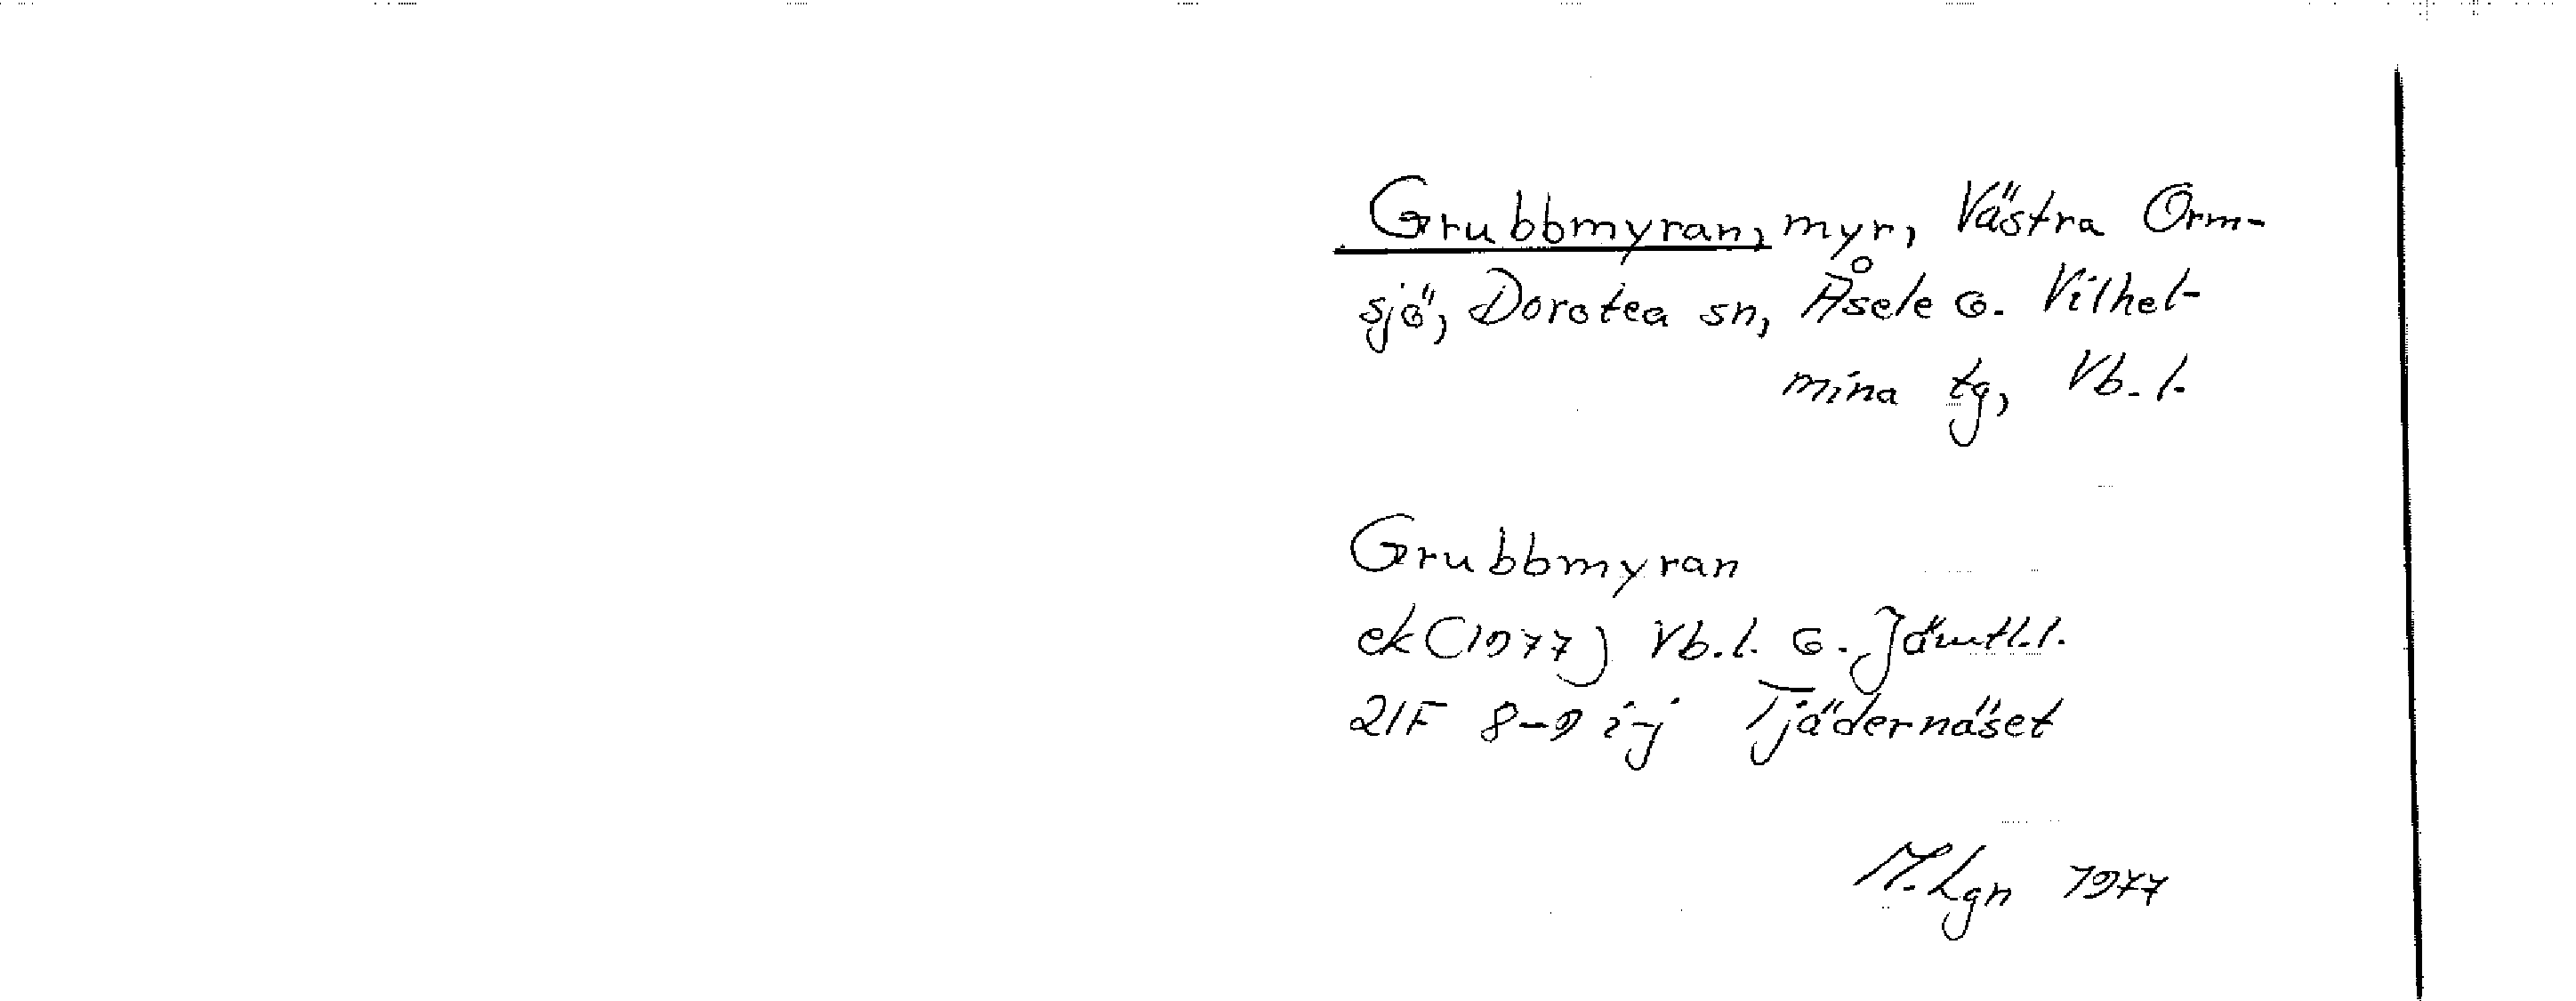 Grubbmyran, myr, Västra Orm-
sjö, Dorotea sn, Åsele o. Vilhel-
mina tg, Vb. l.
Grubbmyran
ek (1977) Vb.l. o. Jämtl.l.
21F 8-9 i-j Tjädernäset
M.Lgn 1977